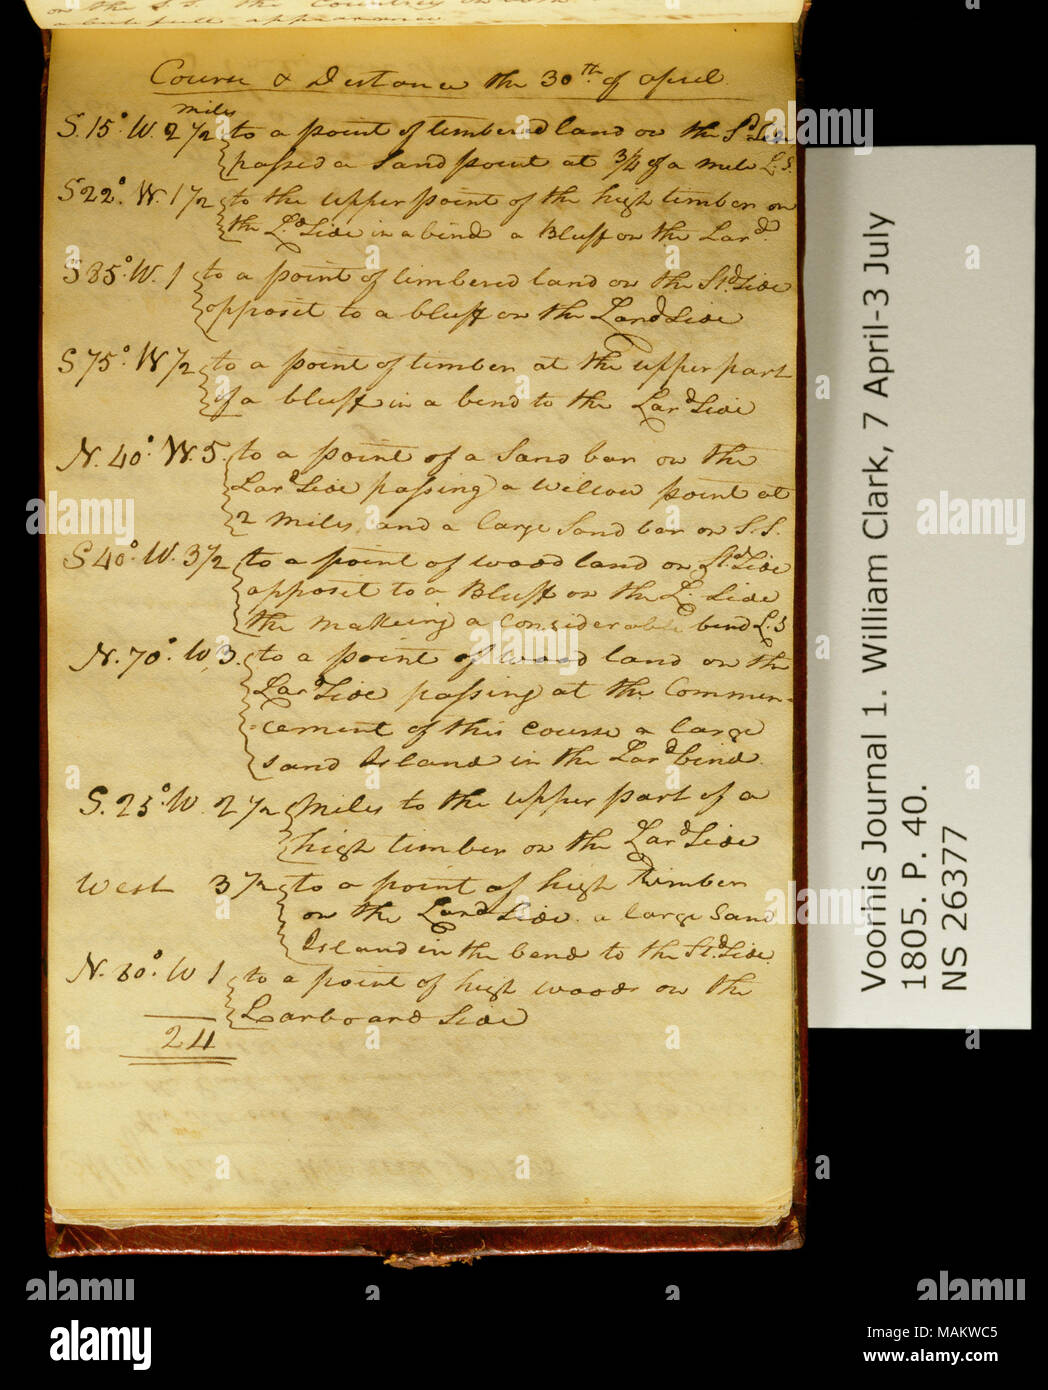 on the S.S. the Country
a butifull appearance
Course & Distance the 30th of april
miles
S. 15° W. 2 1/2 to a point of timbered land on the Sd. Side
passed a Sand point at 3/4 of a mile L.S.
S 22° W. 1 1/2 to the upper point of the high timber on
the Ld. Side in a bind a Bluff on the Lard.
S 85° W. 1 to a point of timbered land on the Std. Side
opposit to a bluff on the Lard Side
S 75° W 1/2 to a point of timber at the upper part
of a bluff in a bend to the Lard Side
N. 40° W. 5. to a point of a Sand bar on the
Lard Side passing a willow point at
2 miles, and a large Sand bar on S.S.
S 40° W. 3 1/2 to a point of wood land on Std. Side
opposit to a Bluff on the L. Side
the makeing a Considerable bend L.S
N. 70° W. 3. to a point of wood land on the
Lard Side passing at the Commen-
-cement of this Course a large
sand Island in the Lard bind.
S. 25° W. 2 1/2 Miles to the upper part of a
high timber on the Lard Side
West 3 1/2 to a point of high timber
on the Lard Side. a large Sand
Island in the bend to the Std. Side.
N. 80° W 1 to a point of high woods on the
Larboard Side
24
Voorhis Journal 1. William Clark, 7 April-3 July
1805. P. 40.
NS 26377
alamy
Image ID: MAKWC5
www.alamy.com